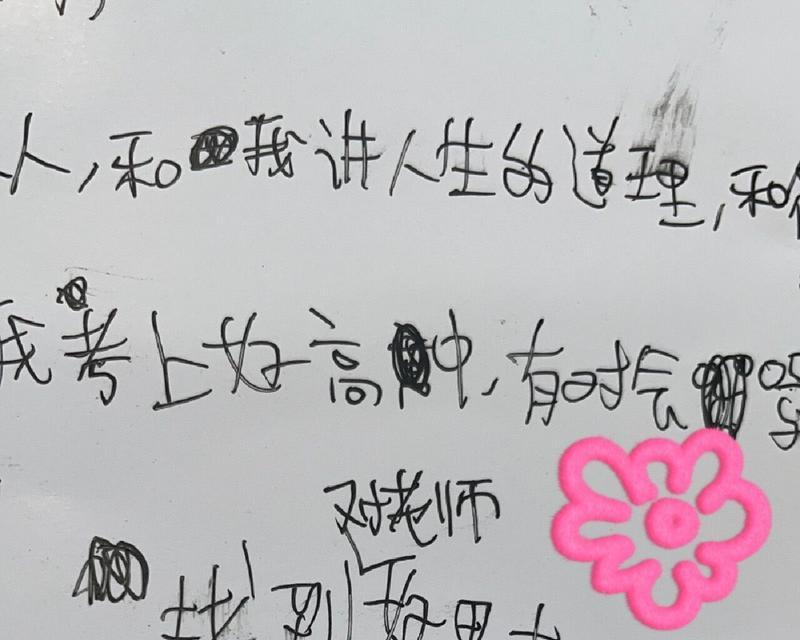 人,和我讲人生的道理,和
我考上好高中,有时会
对老师
找到好